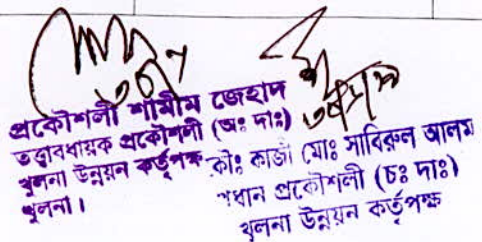 প্রকৌশলী শামীম জেহাদ
তত্ত্বাবধায়ক প্রকৌশলী (অঃ দাঃ)
খুলনা উন্নয়ন কর্তৃপক্ষ
খুলনা।
কৌঃ কাজী মোঃ সাবিরুল আলম
প্রধান প্রকৌশলী (চঃ দাঃ)
খুলনা উন্নয়ন কর্তৃপক্ষ